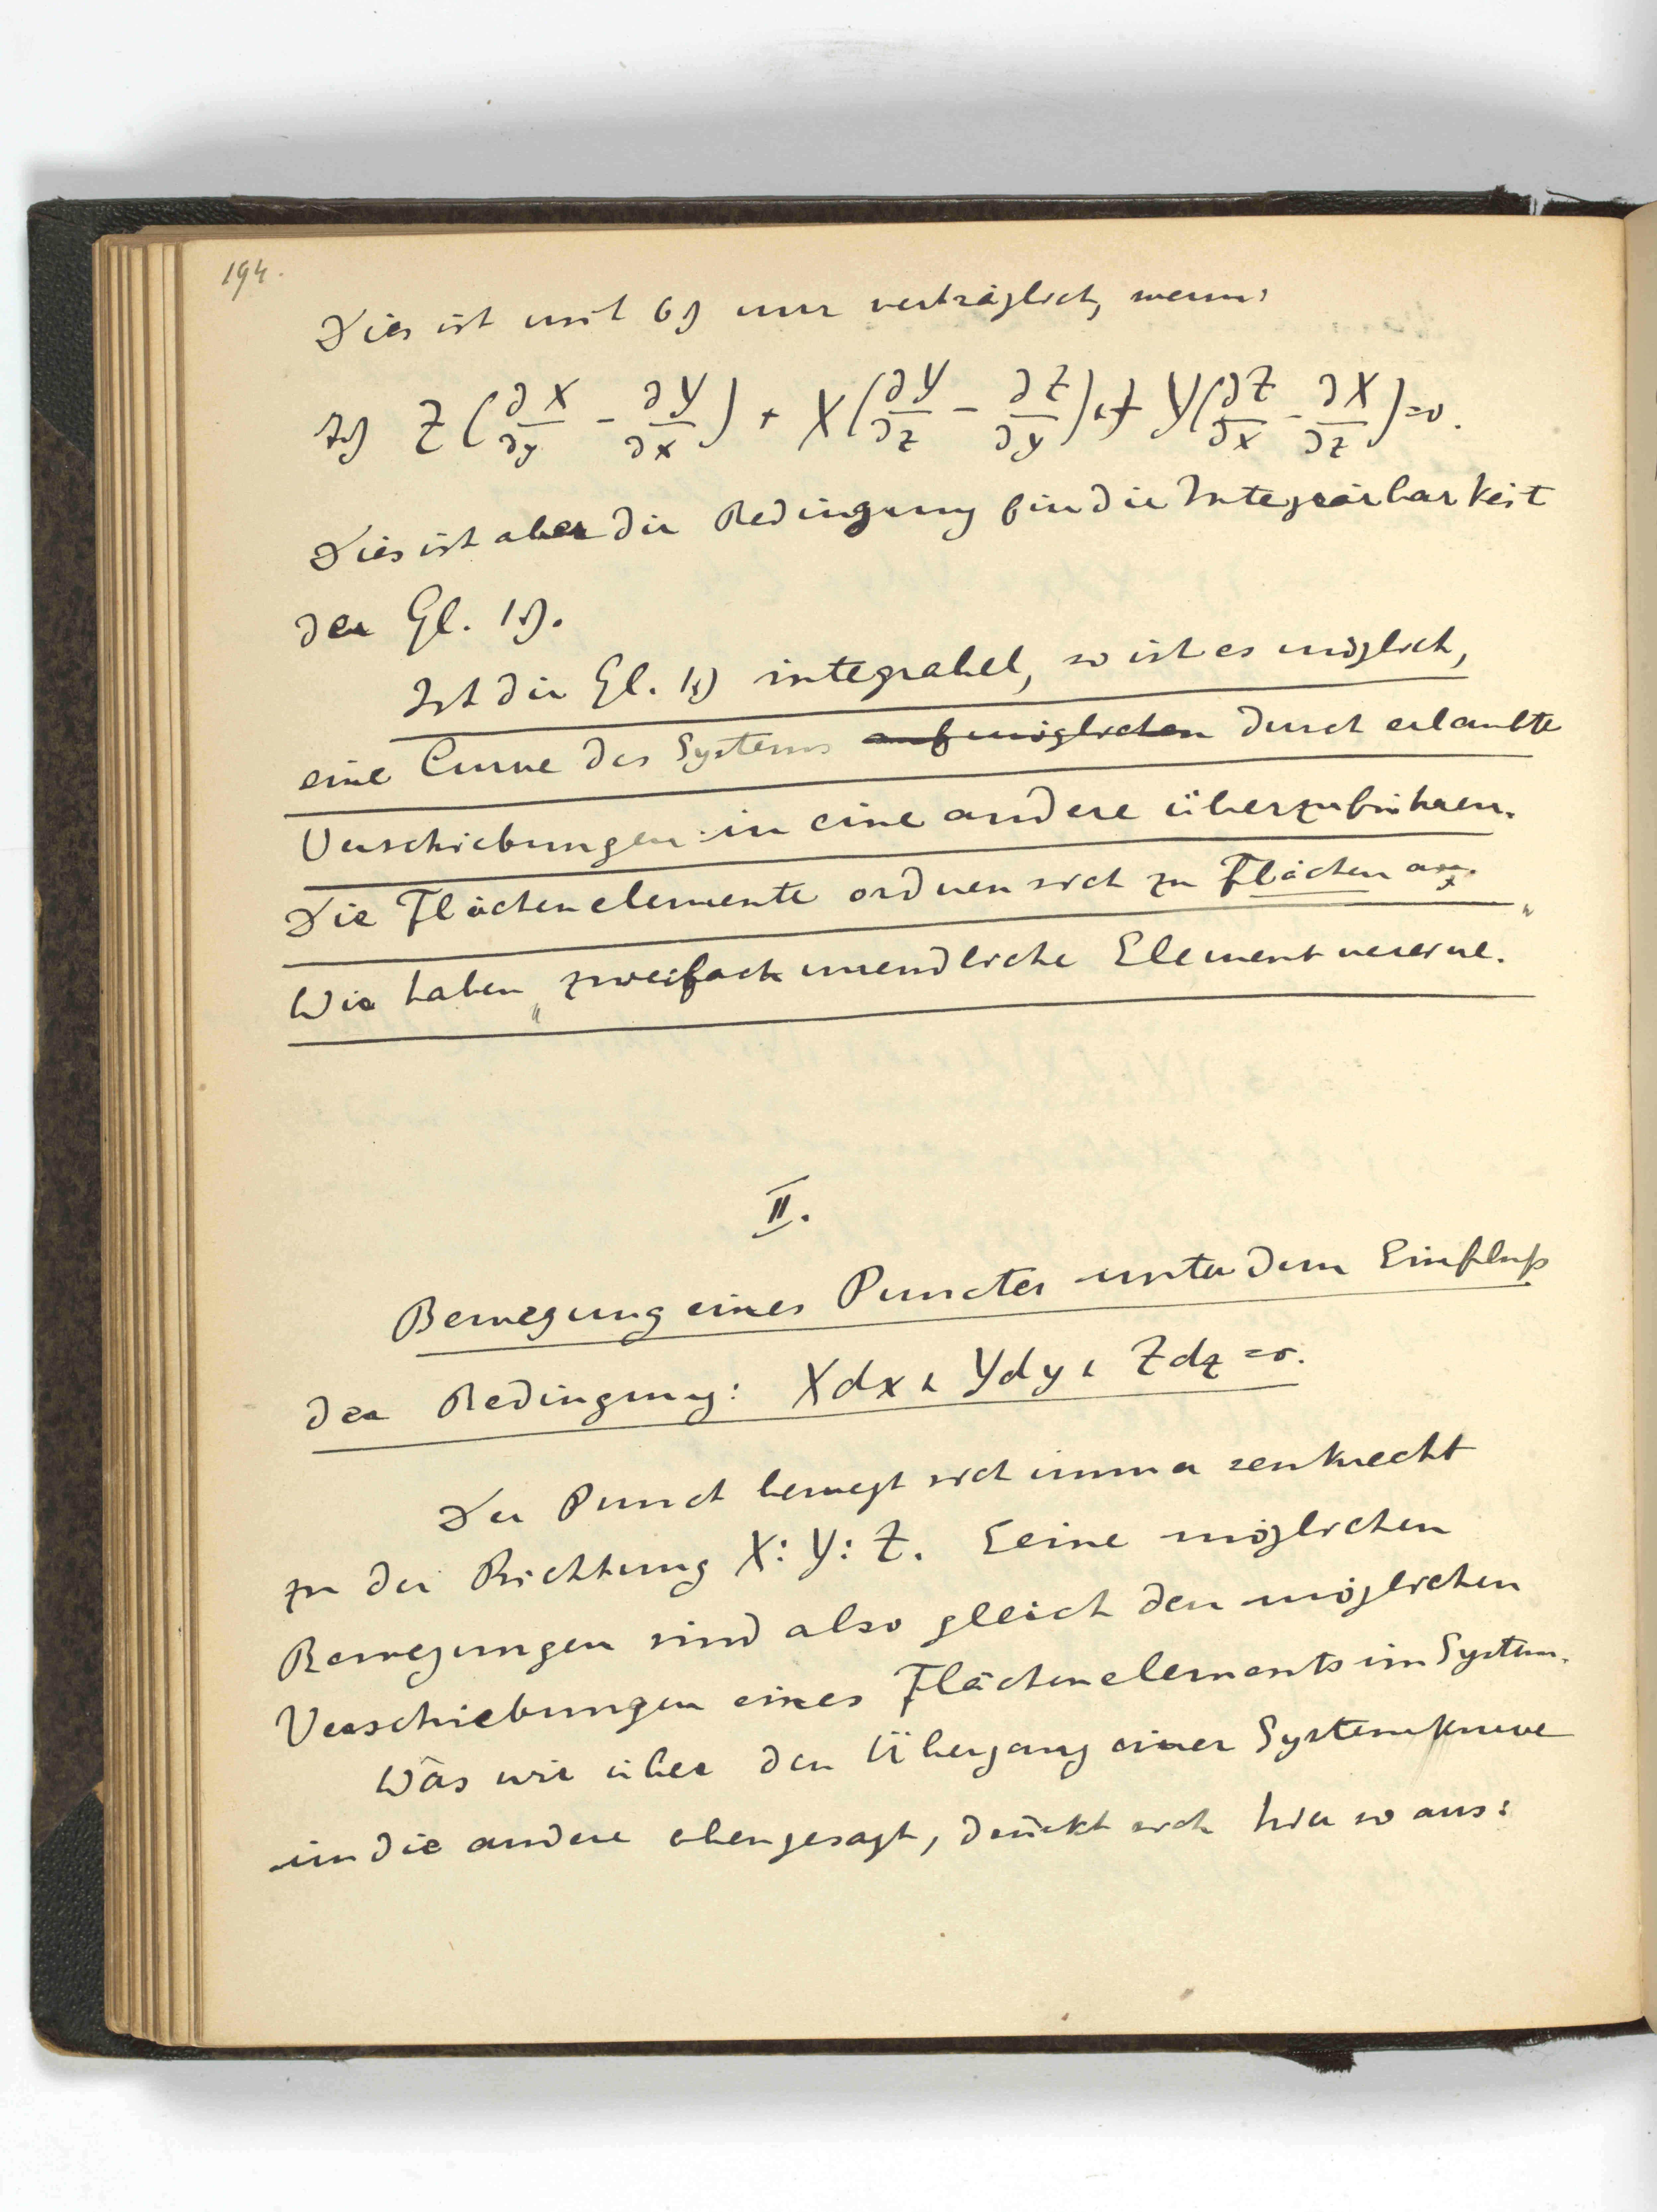 194.
Dies ist mit 6) nur verträglich, wenn:
7.) Z(∂X/∂y - ∂Y/∂x) + X(∂Y/∂z - ∂Z/∂y) + Y(∂Z/∂x - ∂X/∂z) = 0.
Dies ist aber die Bedingung für die Integrirbarkeit
der Gl. 1).
Ist die Gl. 1) integrabel, so ist es möglich,
eine Curve des Systems auf möglichen durch erlaubte
Verschiebungen in eine andere überzuführen.
Die Flächenelemente ordnen sich zu Flächen an.
Wir haben „zweifach unendliche Elementvereine."
II.
Bewegung eines Punctes unter dem Einfluß
der Bedingung: Xdx + Ydy + Zdz = 0.
Der Punct bewegt sich immer senkrecht
zu der Richtung X:Y:Z. Seine möglichen
Bewegungen sind also gleich den möglichen
Verschiebungen eines Flächenelements im System.
Was wir über den Übergang einer Systemkurve
in die andere oben gesagt, drückt sich hier so aus: